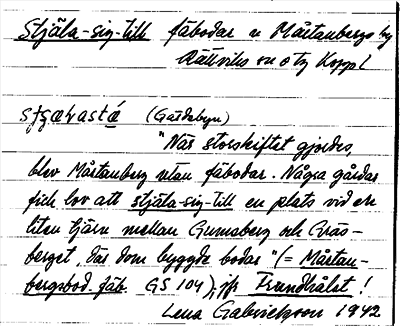 Stjäla-sig-till fäbodar u Mårtanbergs by
Rättviks sn o tg Koppl
(Gärdebyn)
"När storskiftet gjordes,
blev Mårtanberg utan fäbodar. Några gårdar
fick lov att stjäla-sig-till en plats vid en
liten tjärn mellan Gunnaberg och Gräs-
berget, där dom byggde bodar" (= Mårtan-
bergsbod. fäb. GS 104); jfr Frundhålet!
Lena Gabrielsson 1942